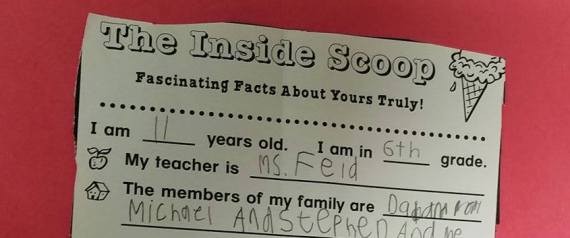 The Inside Scoop
Fascinating Facts About Yours Truly!
I am 11 years old. I am in 6th grade.
My teacher is Ms. Feid
The members of my family are
Michael And Stephen And me